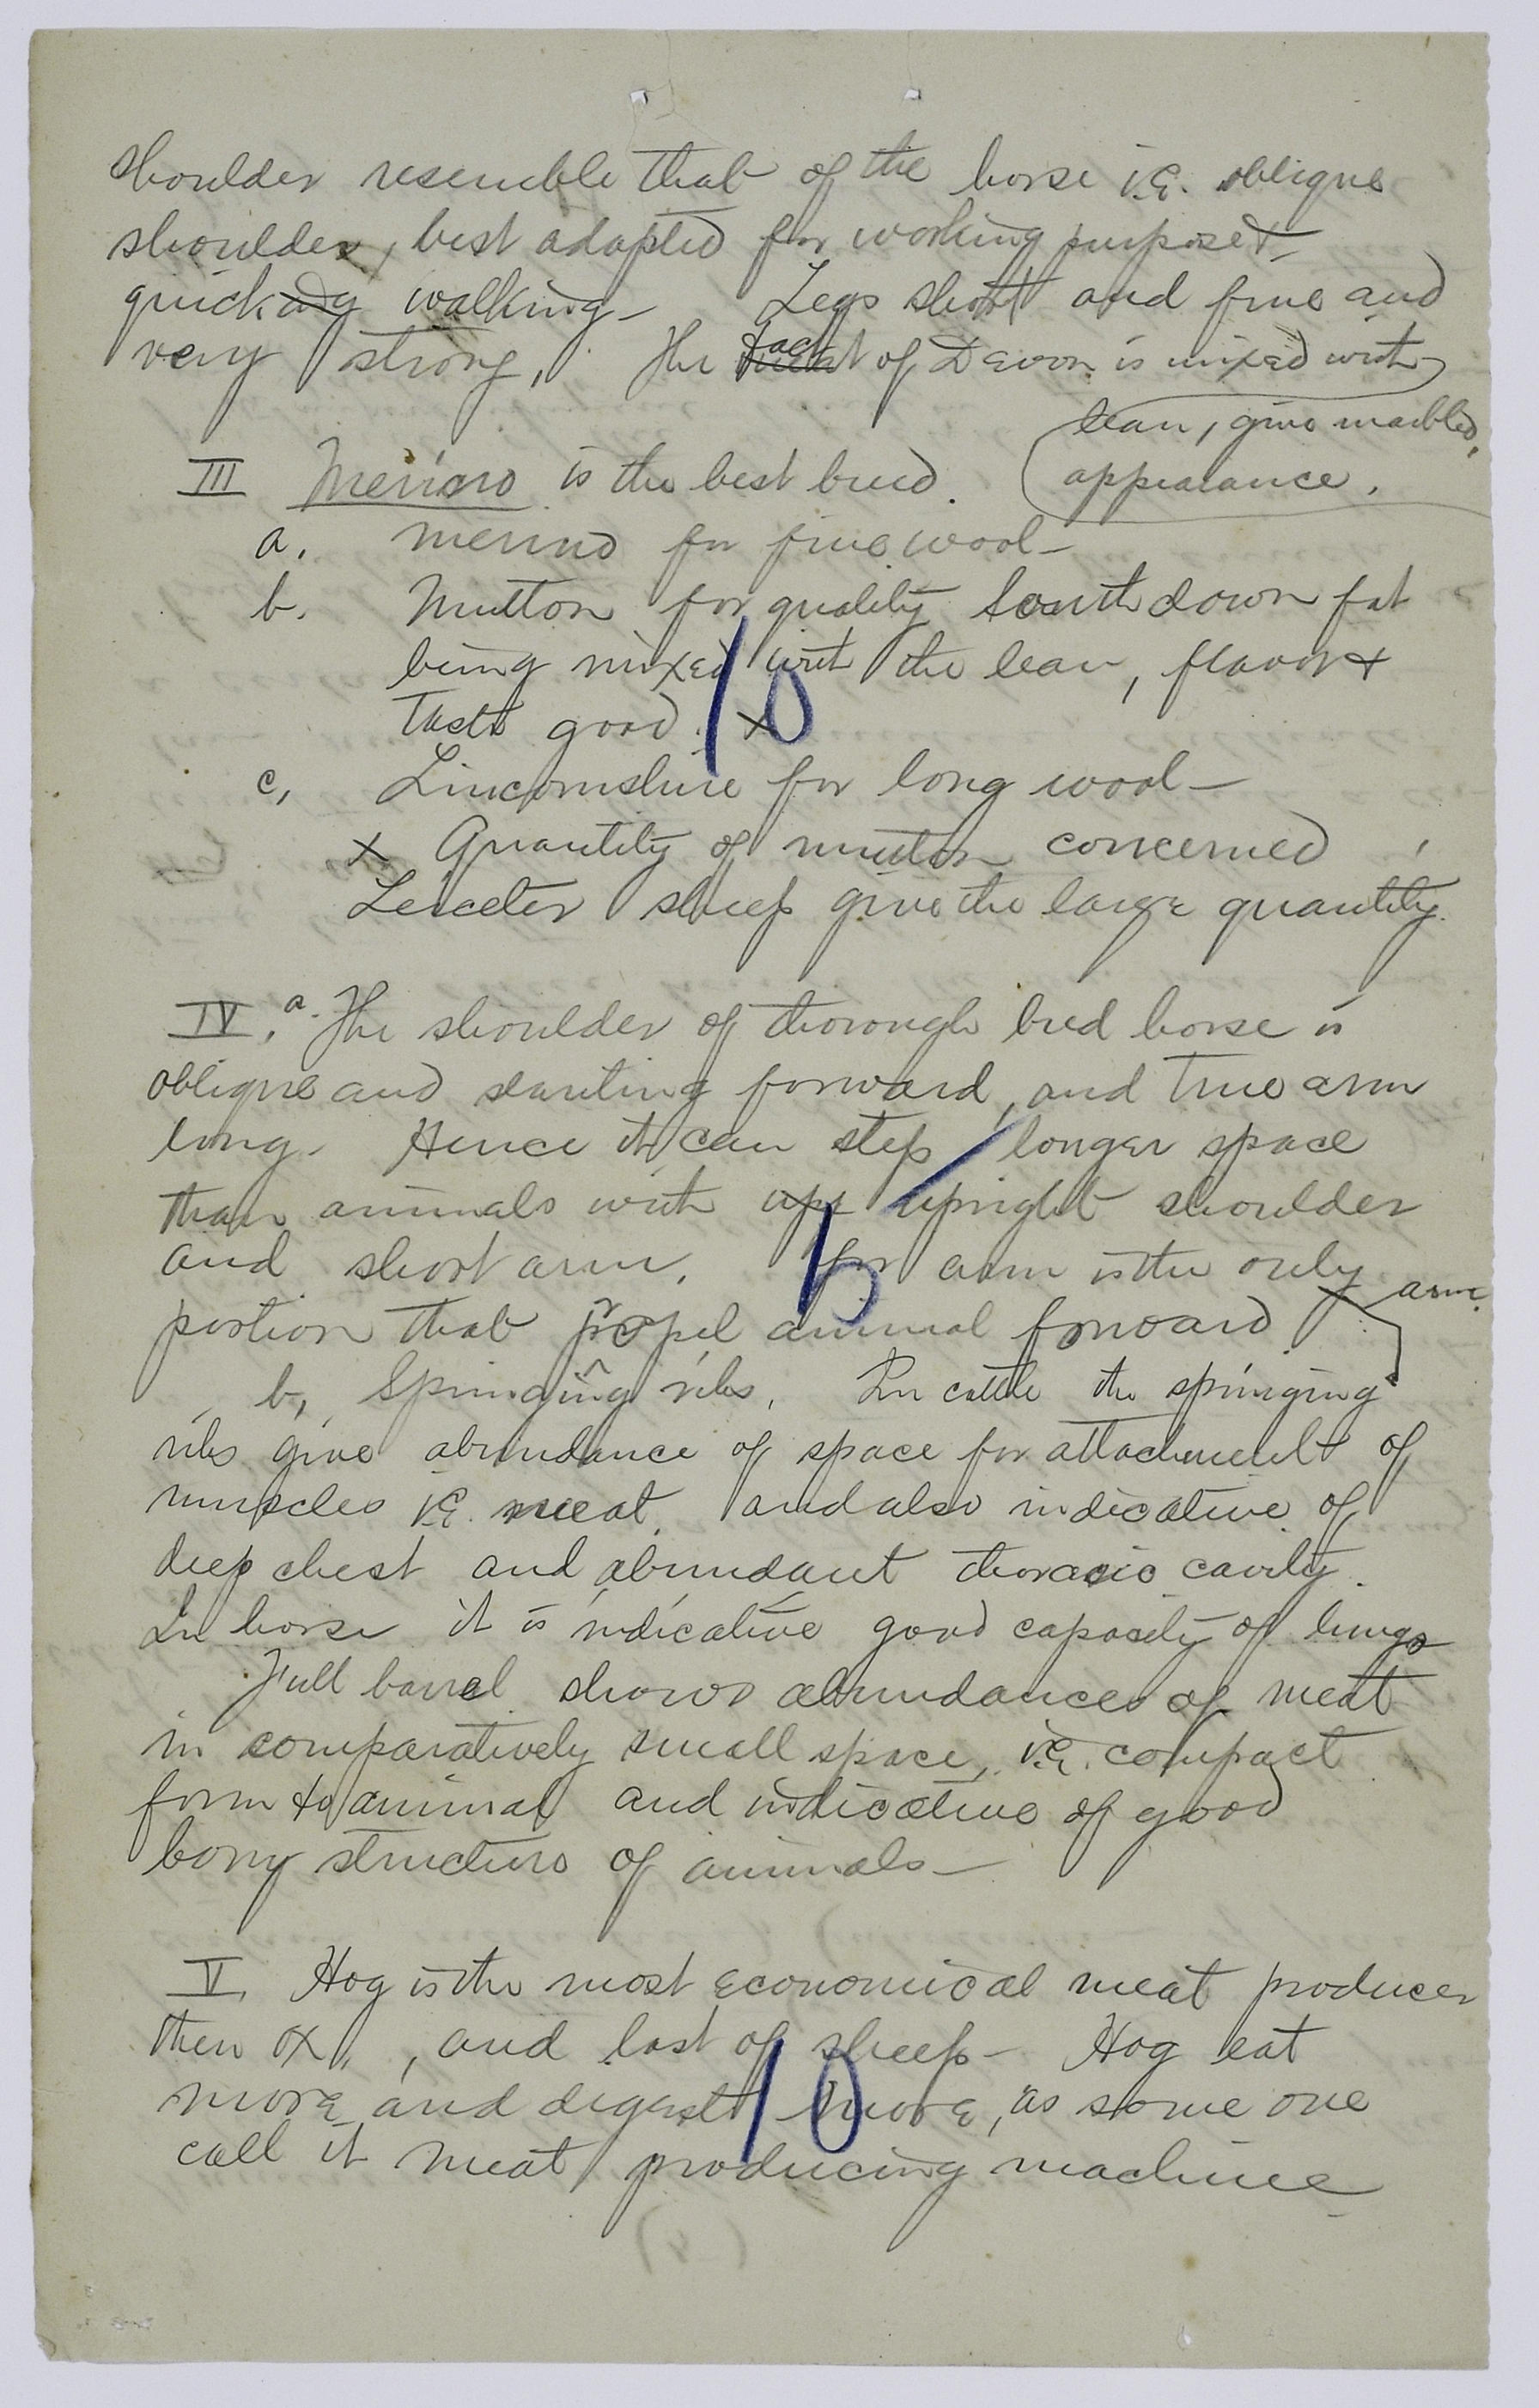 shoulder resemble that of the horse i.e. oblique
shoulder, best adapted for working purpose &
quick walking – Legs short and fine and
very strong. The fat of Devon is mixed with
lean, give marbled
appearance.
III Merino is the best breed.
a. merino for fine wool –
b. Mutton for quality Southdown fat
being mixed with the lean, flavor &
taste good. x
10
c, Lincornshire for long wool –
x Quantity of mutton concerned
Leiceter sheep give the large quantity.
IV. a. The shoulder of thorough bred horse is
oblique and slanting forward, and true arm
long. Hence it can step longer space
than animals with upr upright shoulder
and short arm. for arm is the only
arm
portion that propel animal forward
5
b, Springing ribs. In cattle the springing
ribs give abundance of space for attachment of
muscles i.e. meat. and also indicative of
deep chest and abundant thoracic cavity.
In horse it is indicative good capacity of lungs
Full barrel shows abundances of meat
in comparatively small space, i.e. compact
form to animal and indicative of good
bony structure of animals –
V. Hog is the most economical meat producer
then ox, and last of sheep – Hog eat
more and digest more, as some one
10
call it meat producing machine